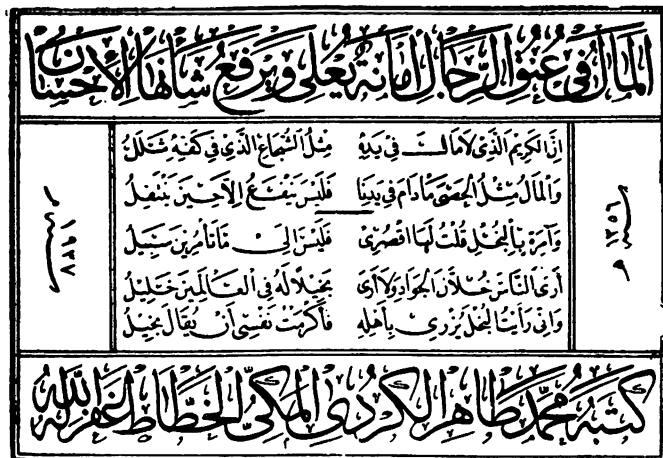 المَالُ فِي عُنُقِ الرِّجَالِ أمَانَةٌ يُعْلِي وَيَرْفَعُ شَأْنَهَا الْإِحْسَانُ
إنَّ الْكَرِيمَ الَّذِي لَا مَالَ فِي يَدِهِ مِثْلُ الشُّجَاعِ الَّذِي فِي كَفِّهِ شَلَلُ
وَالْمَالُ مِثْلُ الْحَصَى مَا دَامَ فِي يَدِنَا فَلَيْسَ يَنْفَعُ إِلَّا حِينَ يَنْتَقِلُ
وَآمِرَةٍ بِالْبُخْلِ قُلْتُ لَهَا اقْصُرِي فَلَيْسَ إِلَى مَا تَأْمُرِينَ سَبِيلُ
أَرَى النَّاسَ خُلَّانَ الْجَوَادِ وَلَا أَرَى بَخِيلًا لَهُ فِي الْعَالَمِينَ خَلِيلُ
وَإِنِّي رَأَيْتُ الْبُخْلَ يُزْرِي بِأَهْلِهِ فَأَكْرَمْتُ نَفْسِي أَنْ يُقَالَ بَخِيلُ
سنة ١٣٥٦ هـ
سنة ١٩٣٧ م
كَتَبَهُ مُحَمَّد طَاهِر الْكُرْدِي الْمَكِّيُّ الْخَطَّاط غَفَرَ اللهُ لَهُ